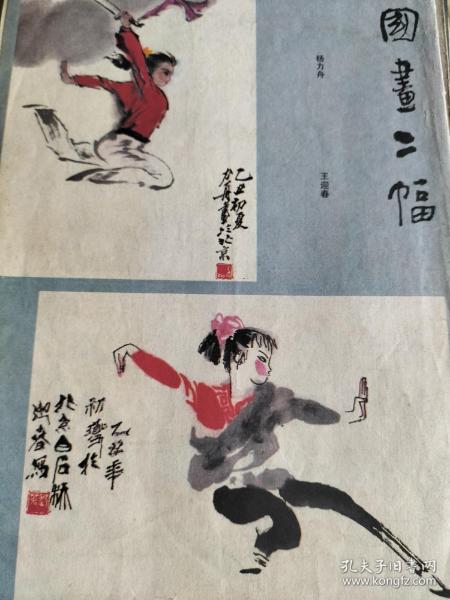 國畫二幅
杨力舟
王迎春
乙丑初夏
力舟畫於北京
初夢於
北京白石桥
迎春写
孔夫子旧书网
www.kongfz.com